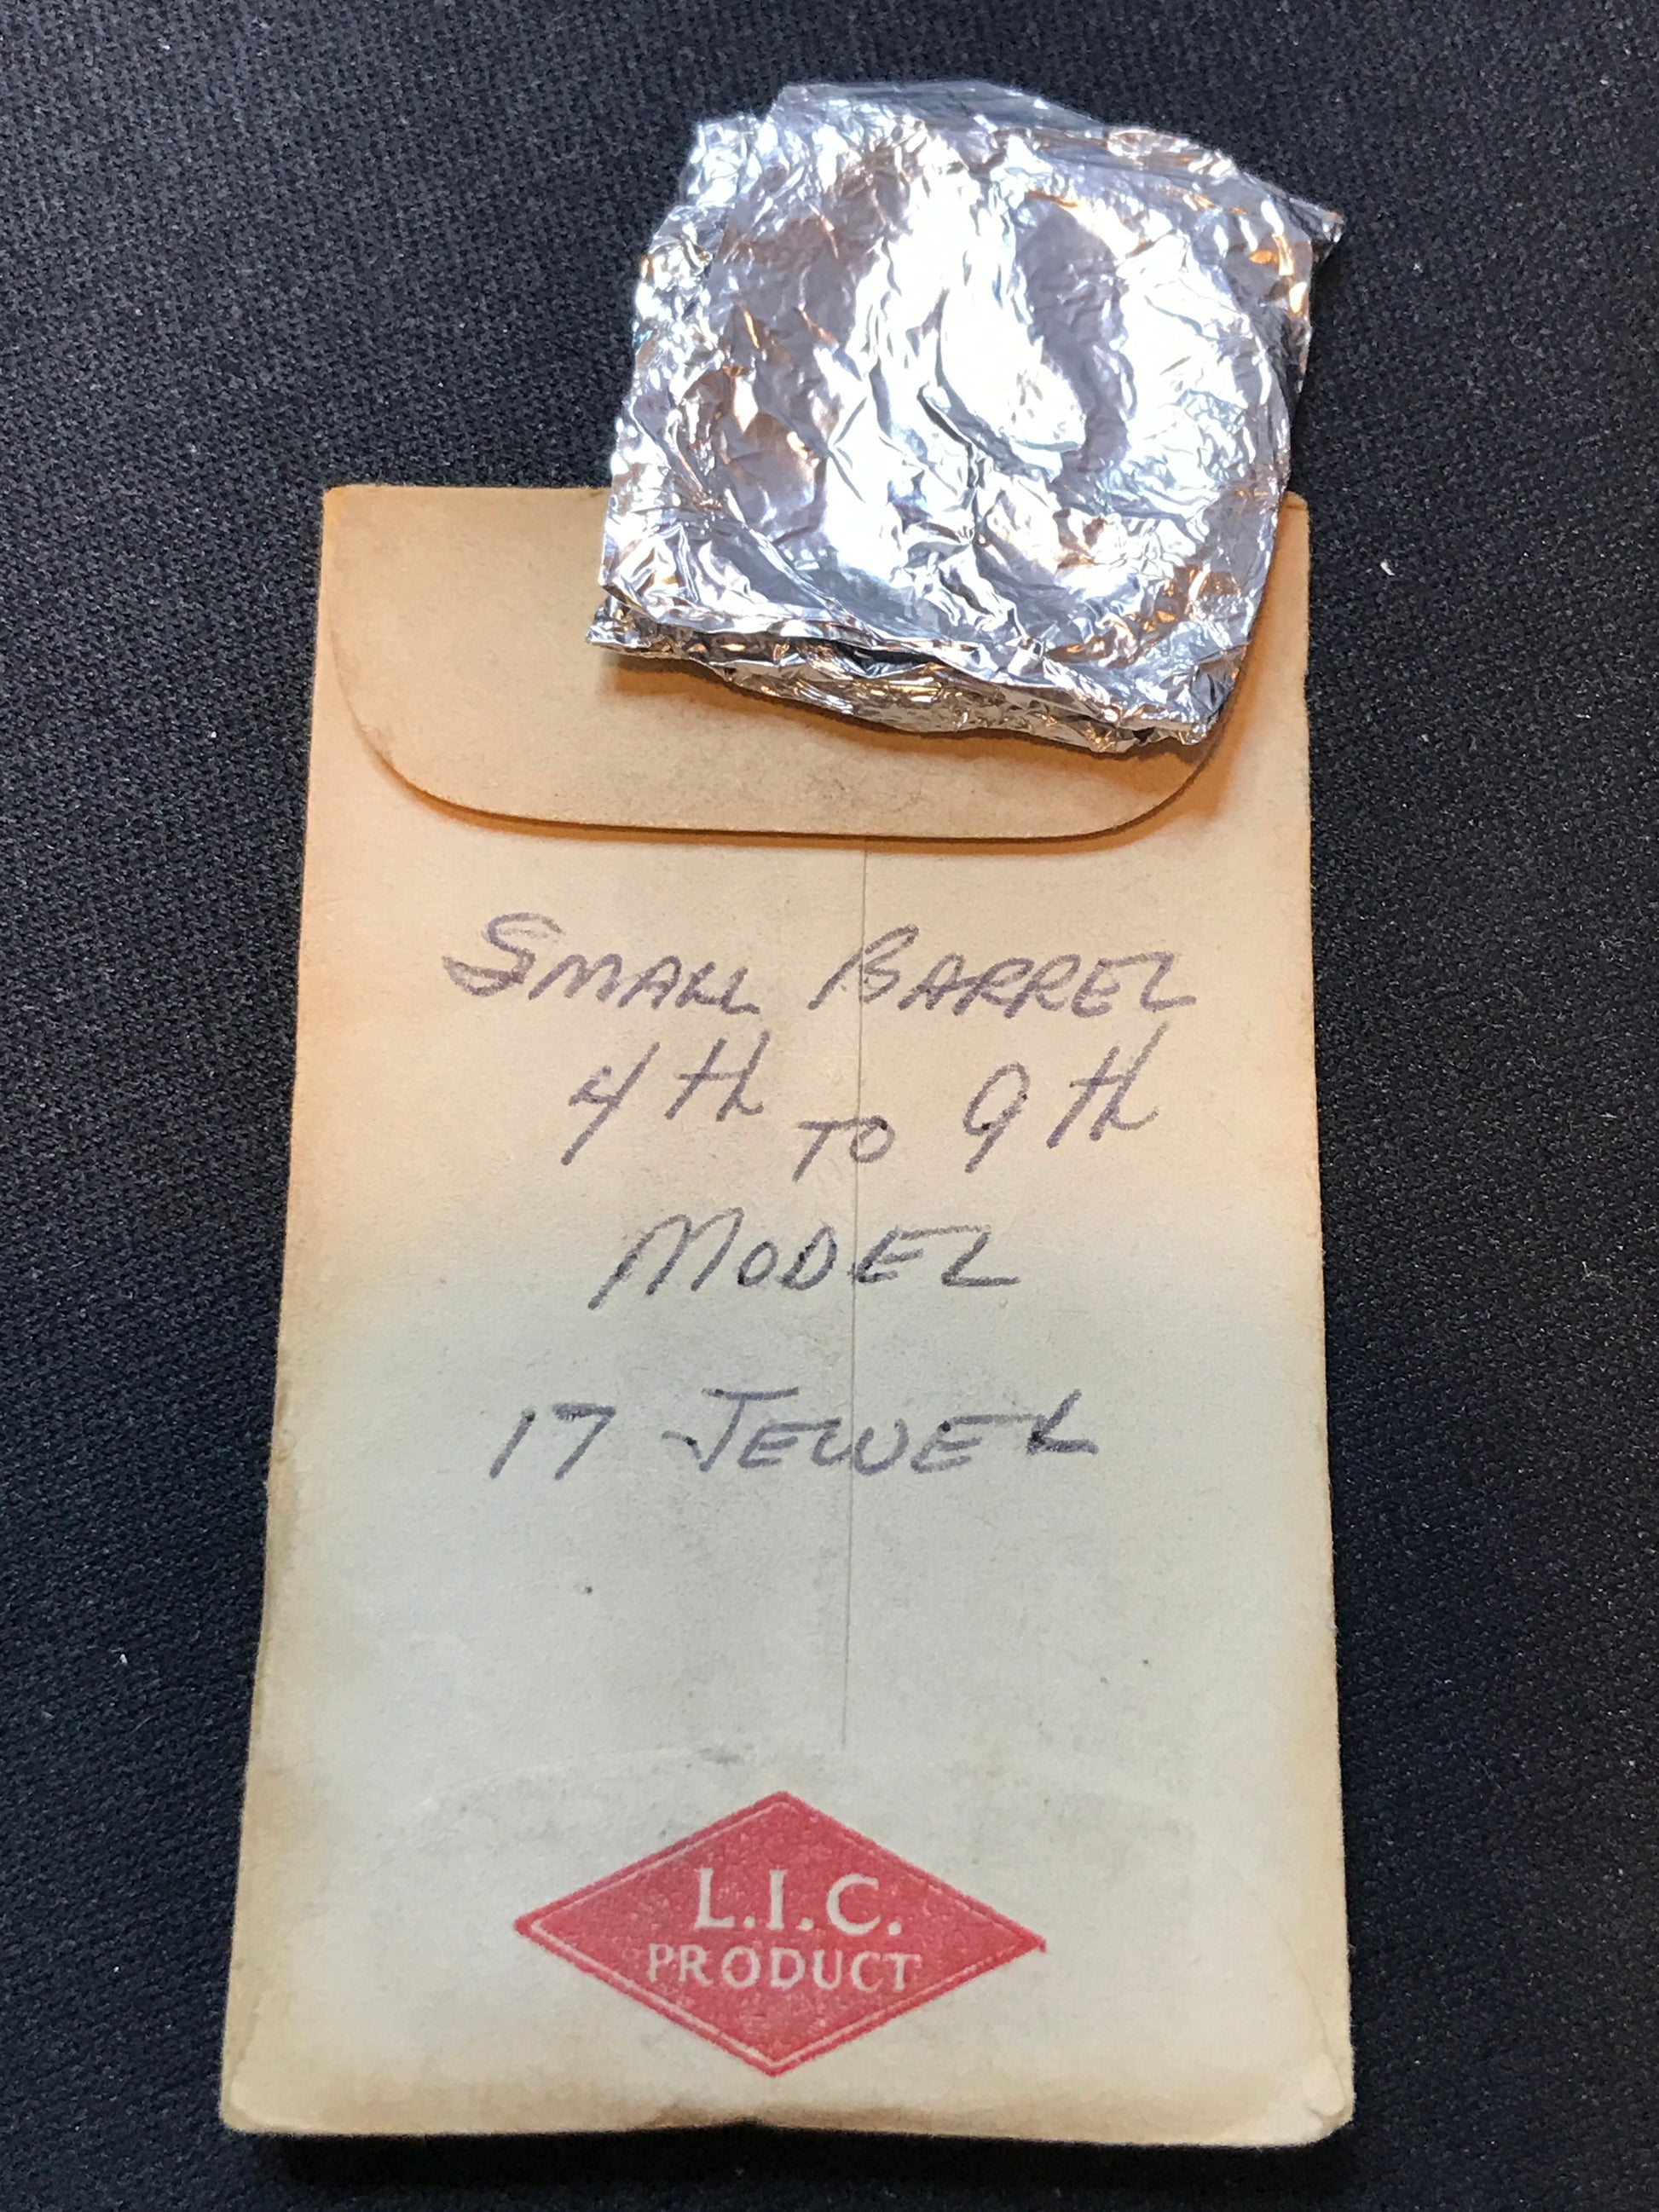 SMALL BARREL
4th TO 9th
MODEL
17 JEWEL
L.I.C.
PRODUCT